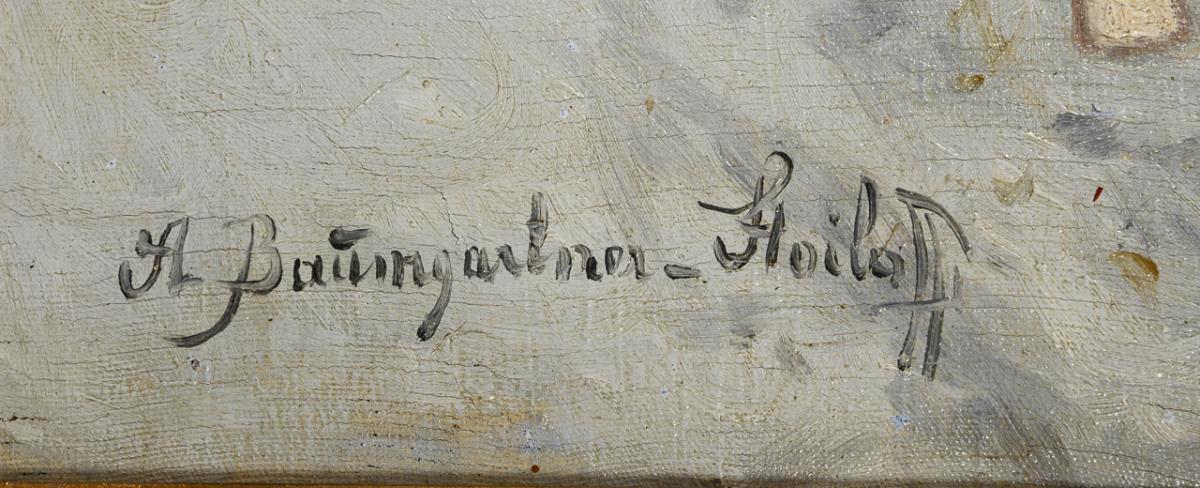 A Baumgartner-Stoiloff